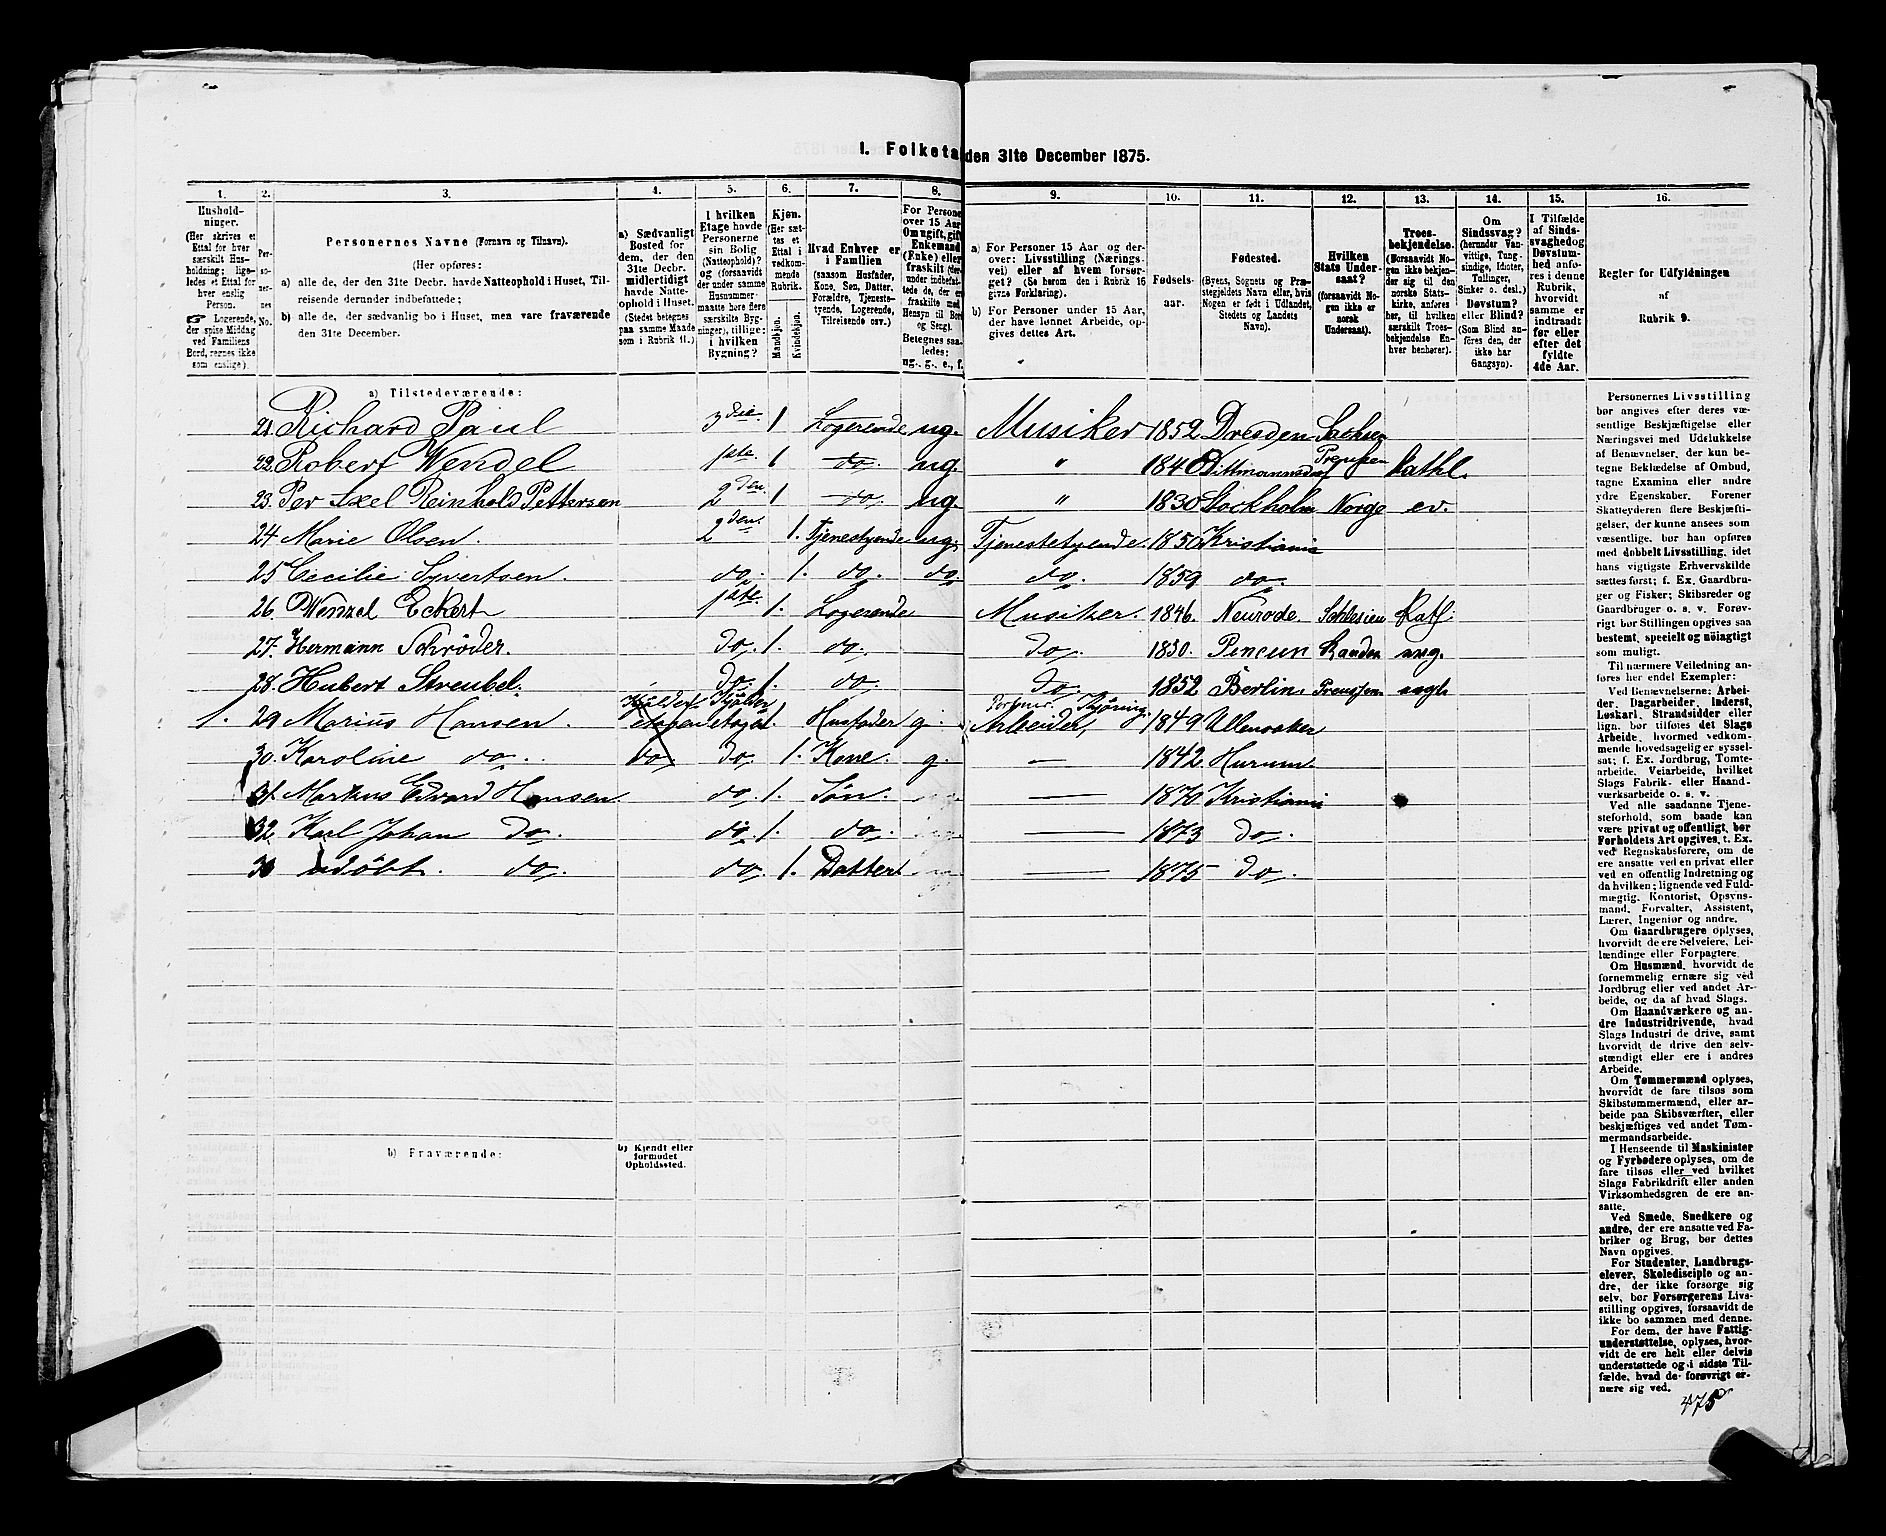 I. Folketal den 31te December 1875.
1. 2. 3. 4. 5. 6. 7. 8. 9. 10. 11. 12. 13. 14. 15. 16.
Husholdninger. (Her skrives et Ettal for hver særskilt Husholdning; ligeledes et Ettal for hver enslig Person. ☞ Logerende, der spise Middag ved Familiens Bord, regnes ikke som enslige).
Personernes No.
Personernes Navne (Fornavn og Tilnavn).
(Her opføres:
a) alle de, der den 31te Decbr. havde Natteophold i Huset, Tilreisende derunder indbefattede;
b) alle de, der sædvanlig bo i Huset, men vare fraværende den 31te December.
a) Sædvanligt Bosted for dem, der den 31te Decbr. midlertidigt havde Natteophold i Huset. (Stedet betegnes paa samme Maade som i Rubrik 11.)
I hvilken Etage havde Personerne sin Bolig (Natteophold)? og (forsaavidt der under samme Husnummer maatte høre flere særskilte Bygninger), tillige: i hvilken Bygning?
Kjøn. (Her sættes et Ettal i vedkommende Rubrik.
Mandkjøn. Kvindekjøn.
Hvad Enhver er i Familien (saasom Husfader, Kone, Søn, Datter, Forældre, Tjenestetyende, Logerende, Tilreisende osv.)
For Personer over 15 Aar Om ugift, gift, Enkemand (Enke) eller fraskilt
Betegnes saaledes: ug., g., e., f.
a) For Personer 15 Aar og derover: Livsstilling (Næringsvei) eller af hvem forsørget? (Se herom den i Rubrik 16 givne Forklaring).
b) For Personer under 15 Aar, der have lønnet Arbeide, opgives dettes Art.
Fødselsaar.
Fødested. (Byens, Sognets og Præstegjeldets Navn eller, hvis Nogen er født i Udlandet, Stedets og Landets Navn).
Hvilken Stats Undersaat? (forsaavidt Nogen ikke er norsk Undersaat).
Troesbekjendelse. (Forsaavidt Nogen ikke bekjender sig til den norske Statskirke, anføres her, til hvilken særskilt Troesbekjendelse Enhver henhører).
Om Sindssvag? (herunder Vanvittige, Tungsindige, Idioter, Tullinger, Sinker o. desl.) Døvstum? eller Blind? (Som Blind anføres den, der ikke har Gangsyn).
I Tilfælde af Sindssvaghed og Døvstumhed anføres i denne Rubrik, hvorvidt samme er indtraadt før eller efter det fyldte 4de Aar.
Regler for Udfyldningen af Rubrik 9.
a) Tilstedeværende:
21. Richard Paul 3die. 1 Logerende ug. Musiker 1852 Dresden Sachsen
22. Robert Wendel 1ste. 1 do. ug. " 1840 Dittmannsdorf Preussen Kathl.
23. Per Axel Reinhold Pettersen 2den. 1 do. ug. " 1830 Stockholm Norge ev.
24 Marie Olsen. 2den. 1. Tjenestyende ug. Tjenestetyende. 1850 Kristiania
25 Cecilie Syvertsen. do. 1. do. do do. 1859 do.
26. Wenzel Eckert 1ste. 1. Logerende Musiker. 1846. Neurode Schlesien Kath.
27. Hermann Schrøder. do. 1. do. do. 1850. Pencun Randen
28. Hubert Streubel. do. 1. do. do. 1852 Berlin. Preussen
1. 29 Marius Hansen. Kjælder etagen Kjælder etagen 1. Husfader g. Arbeider, 1849 Ullensaker
30. Karoline do. do do. 1. Kone. g. — 1842 Hurum
31. Markus Edvard Hansen do. 1. Søn. — 1870 Kristiania
32 Karl Johan do. do. 1. do. — 1873 do.
udøbt. do. do. 1. Datter — 1875 do.
b) Fraværende:
b) Kjendt eller formodet Opholdssted.
Personernes Livsstilling
bør angives efter deres væsentlige
Beskjæftigelse eller
Næringsvei med Udelukkelse
af Benævnelser, der kun betegne
Beklædelse af Ombud,
tagne Examina eller andre
ydre Egenskaber. Forener
Skatteyderen flere Beskjæftigelser,
der kunne ansees som
væsentlige, bør han opføres
med dobbelt Livsstilling, idet
hans vigtigste Erhvervskilde
sættes først; f. Ex. Gaardbruger
og Fisker; Skibsreder og
Gaardbruger o. s. v. Forøvrigt
bør Stillingen opgives saa
bestemt, specielt og nöiagtigt
som muligt.
Til nærmere Veiledning anføres
her endel Exempler:
Ved Benævnelserne: Arbeider,
Dagarbeider, Inderst,
Løskarl, Strandsidder eller
lign. bør tilføies det Slags
Arbeide, hvormed vedkommende
hovedsagelig er sysselsat;
f. Ex. Jordbrug, Tomtearbeide,
Veiarbeide, hvilket
Slags Fabrik- eller Haandværksarbeide
o. s. v.
Ved alle saadanne Tjenesteforhold,
som baade kan
være privat og offentligt, bør
Forholdets Art opgives, t. Ex.
ved Regnskabsførere, om de
ere ansatte ved en privat eller
ved en offentlig Indretning og
da hvilken; lignende ved Fuldmægtig,
Kontorist, Opsynsmand,
Forvalter, Assistent,
Lærer, Ingeniør og andre.
Om Gaardbrugere oplyses,
hvorvidt de ere Selveiere, Leilændinge
eller Forpagtere.
Om Husmænd, hvorvidt de
fornemmelig ernære sig ved
Jordbrug eller ved andet Arbeide,
og da af hvad Slags.
Om Haandværkere og andre
industridrivende, hvad
Slags Industri de drive, samt
hvorvidt de drive den selvstændigt
eller ere i andres
Arbeide.
Om Tømmermænd oplyses,
hvorvidt de fare tilsøs som
Skibstømmermænd, eller arbeide
paa Skibsværfter, eller
beskjæftiges ved andet Tømmermandsarbeide.
I Henseende til Maskinister
og Fyrbødere oplyses, om de
fare tilsøs eller ved hvilket
Slags Fabrikdrift eller anden
Virksomhedsgren de ere ansatte.
Ved Smede, Snedkere og
andre, der ere ansatte ved Fabriker
og Brug, bør dettes
Navn opgives.
For Studenter, Landbrugselever,
Skoledisciple og andre,
der ikke forsørge sig
selv, bør Forsørgerens Livsstilling
opgives, forsaavidt de
ikke bo sammen med denne.
For dem, der have Fattigunderstøttelse,
oplyses, hvorvidt
de ere helt eller delvis
understøttede og i sidste Tilfælde,
hvad de forøvrigt ernære
sig ved.
475